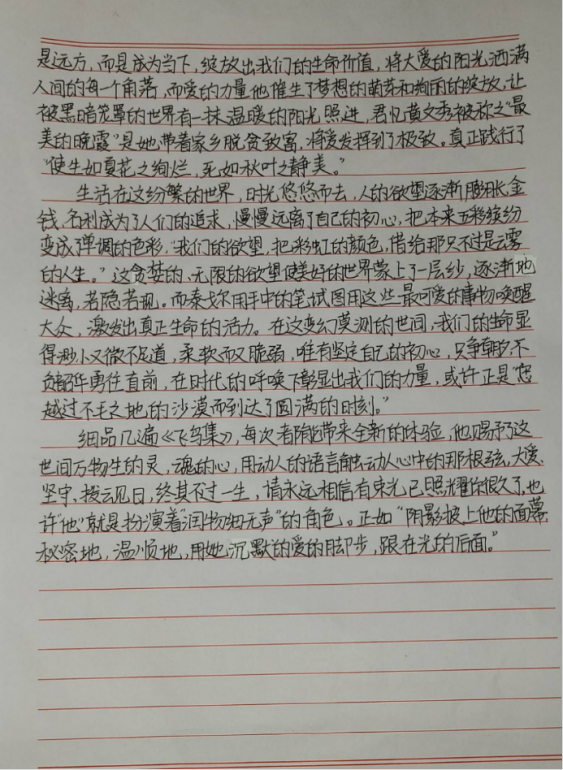 是远方，而是成为当下，绽放出我们的生命价值，将大爱的阳光洒满
人间的每一个角落，而爱的力量他催生了梦想的萌芽和绚丽的绽放，让
被黑暗笼罩的世界有一抹温暖的阳光照进，君见黄文秀被称之“最
美的晚霞”是她带着家乡脱贫致富，将爱发挥到了极致。真正践行了
“使生如夏花之绚烂，死如秋叶之静美。”
生活在这纷繁的世界，时光悠悠而去，人的欲望逐渐膨胀，金
钱、名利成为了人们的追求，慢慢远离了自己的初心，把本来五彩缤纷
变成了单调的色彩，“我们的欲望，把彩虹的颜色，借给那只不过是云雾
的人生。”这贪婪的、无限的欲望使美好的世界蒙上了一层纱，逐渐地
迷离，若隐若现。而泰戈尔用手中的笔试图用这些最可爱的事物唤醒
大众，激发出真正生命的活力。在这变幻莫测的世间，我们的生命显
得渺小又微不足道，柔软而又脆弱，唯有坚定自己的初心，只争朝夕，不
负韶华勇往直前，在时代的呼唤下彰显出我们的力量，或许正是“您
越过不毛之地的沙漠而到达了圆满的时刻。”
细品几遍《飞鸟集》，每次都能带来全新的体验，他赐予这
世间万物生的灵，魂的心，用动人的语言触动人心中的那根弦，大爱、
坚守，拨云见日，终其不过一生，请永远相信有束光已照耀的很久了，也
许“他”就是扮演着“润物细无声”的角色。正如“阴影披上她的面幕，
秘密地，温顺地，用她沉默的爱的脚步，跟在光的后面。”